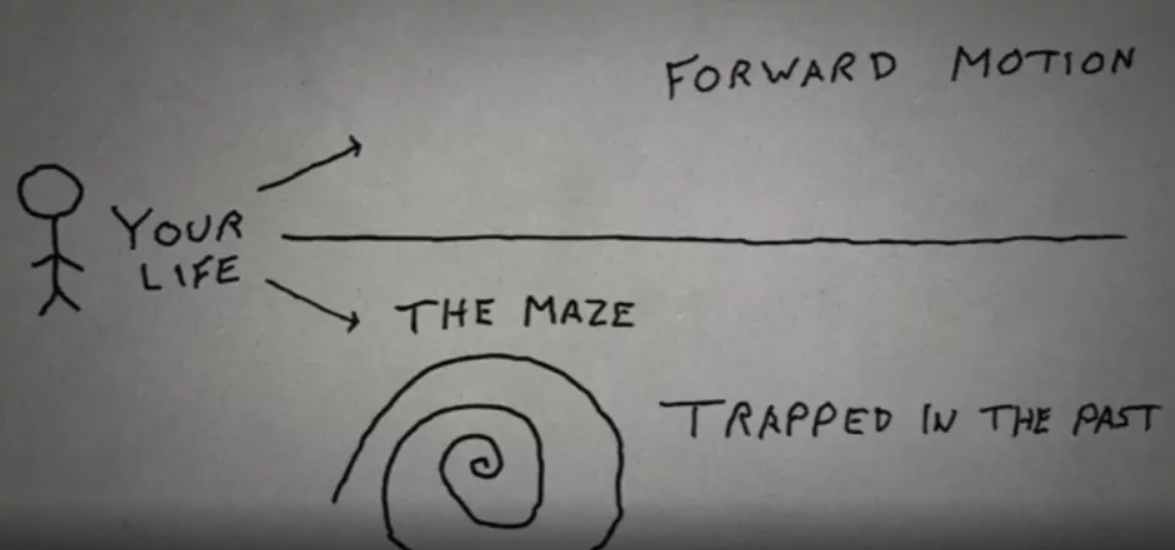 FORWARD MOTION
YOUR
LIFE
THE MAZE
TRAPPED IN THE PAST